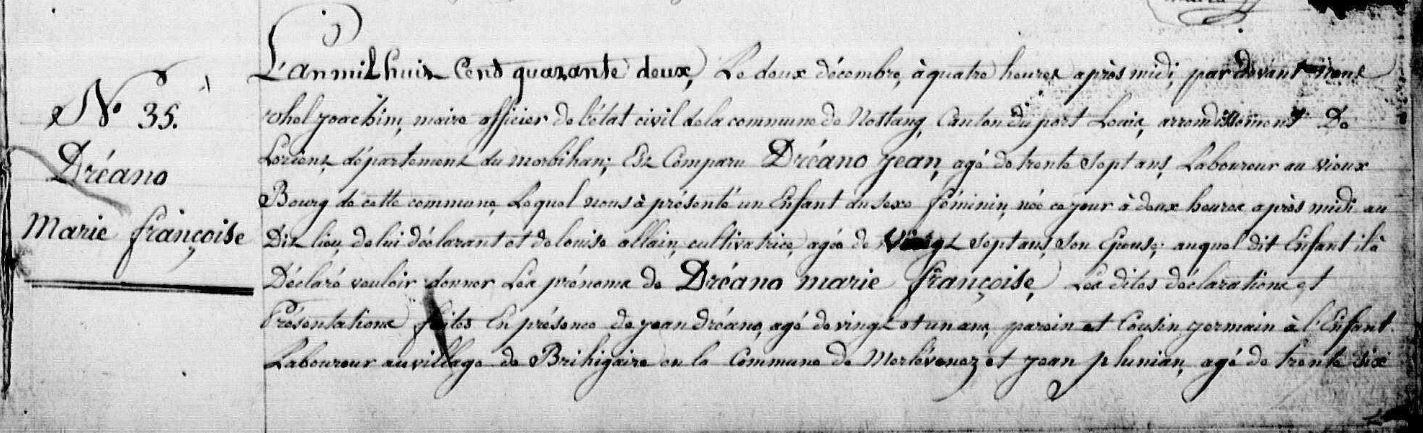 N° 35.
Dréano
Marie françoise
L'an mil huit Cent quarante deux, Le deux décembre, à quatre heures après midi, par devant nous
Joachim, maire officier de l'état civil de la commune de Nostang, Canton du port Louis, arrondissement De
Lorient, département du morbihan; Est Comparu Dréano jean, agé de trente sept ans, Laboureur au vieux
Bourg de cette commune, Lequel nous à présenté un Enfant du sexe féminin, née ce jour à deux heures après midi au
Dit lieu, de lui déclarant et de louise allain, cultivatrice, agée de vingt sept ans, Son Epouse; auquel dit Enfant il à
Déclaré vouloir donner Les prénoms de Dréano marie françoise, Les dites déclarations et
Présentations faites En présence de jean dréano, agé de vingt et un ans, parein et Cousin germain à l'Enfant
Laboureur au village de Brihigaire en la Commune de Merlévenez et jean plunian, agé de trente six